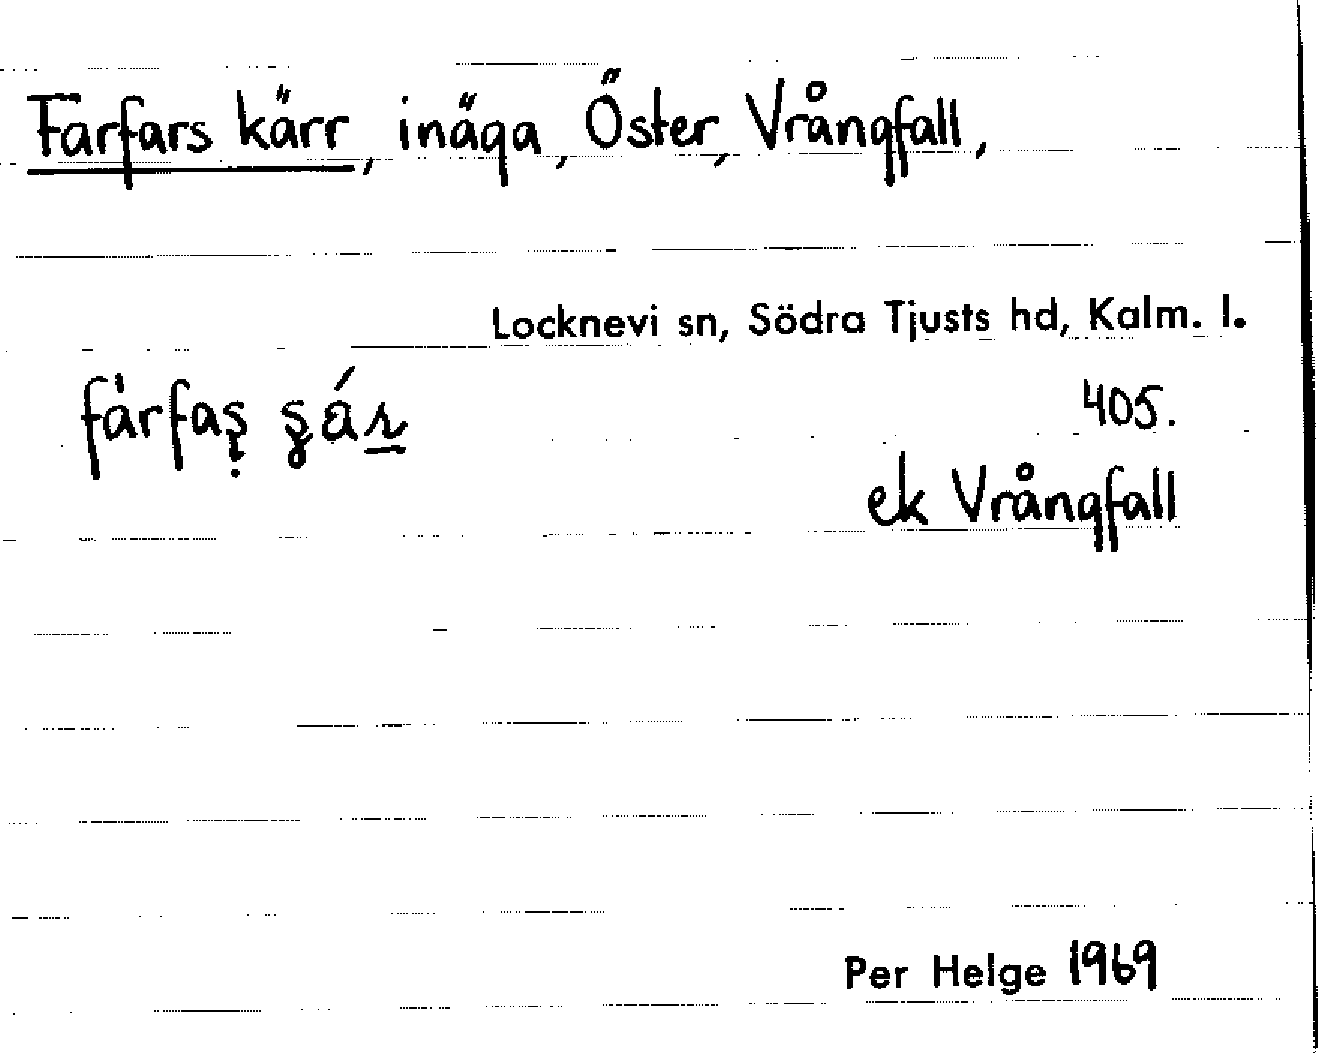 Farfars kärr, inäga, Öster, Vrångfall,
Locknevi sn, Södra Tjusts hd, Kalm. l.
405.
ek Vrångfall
Per Helge 1969